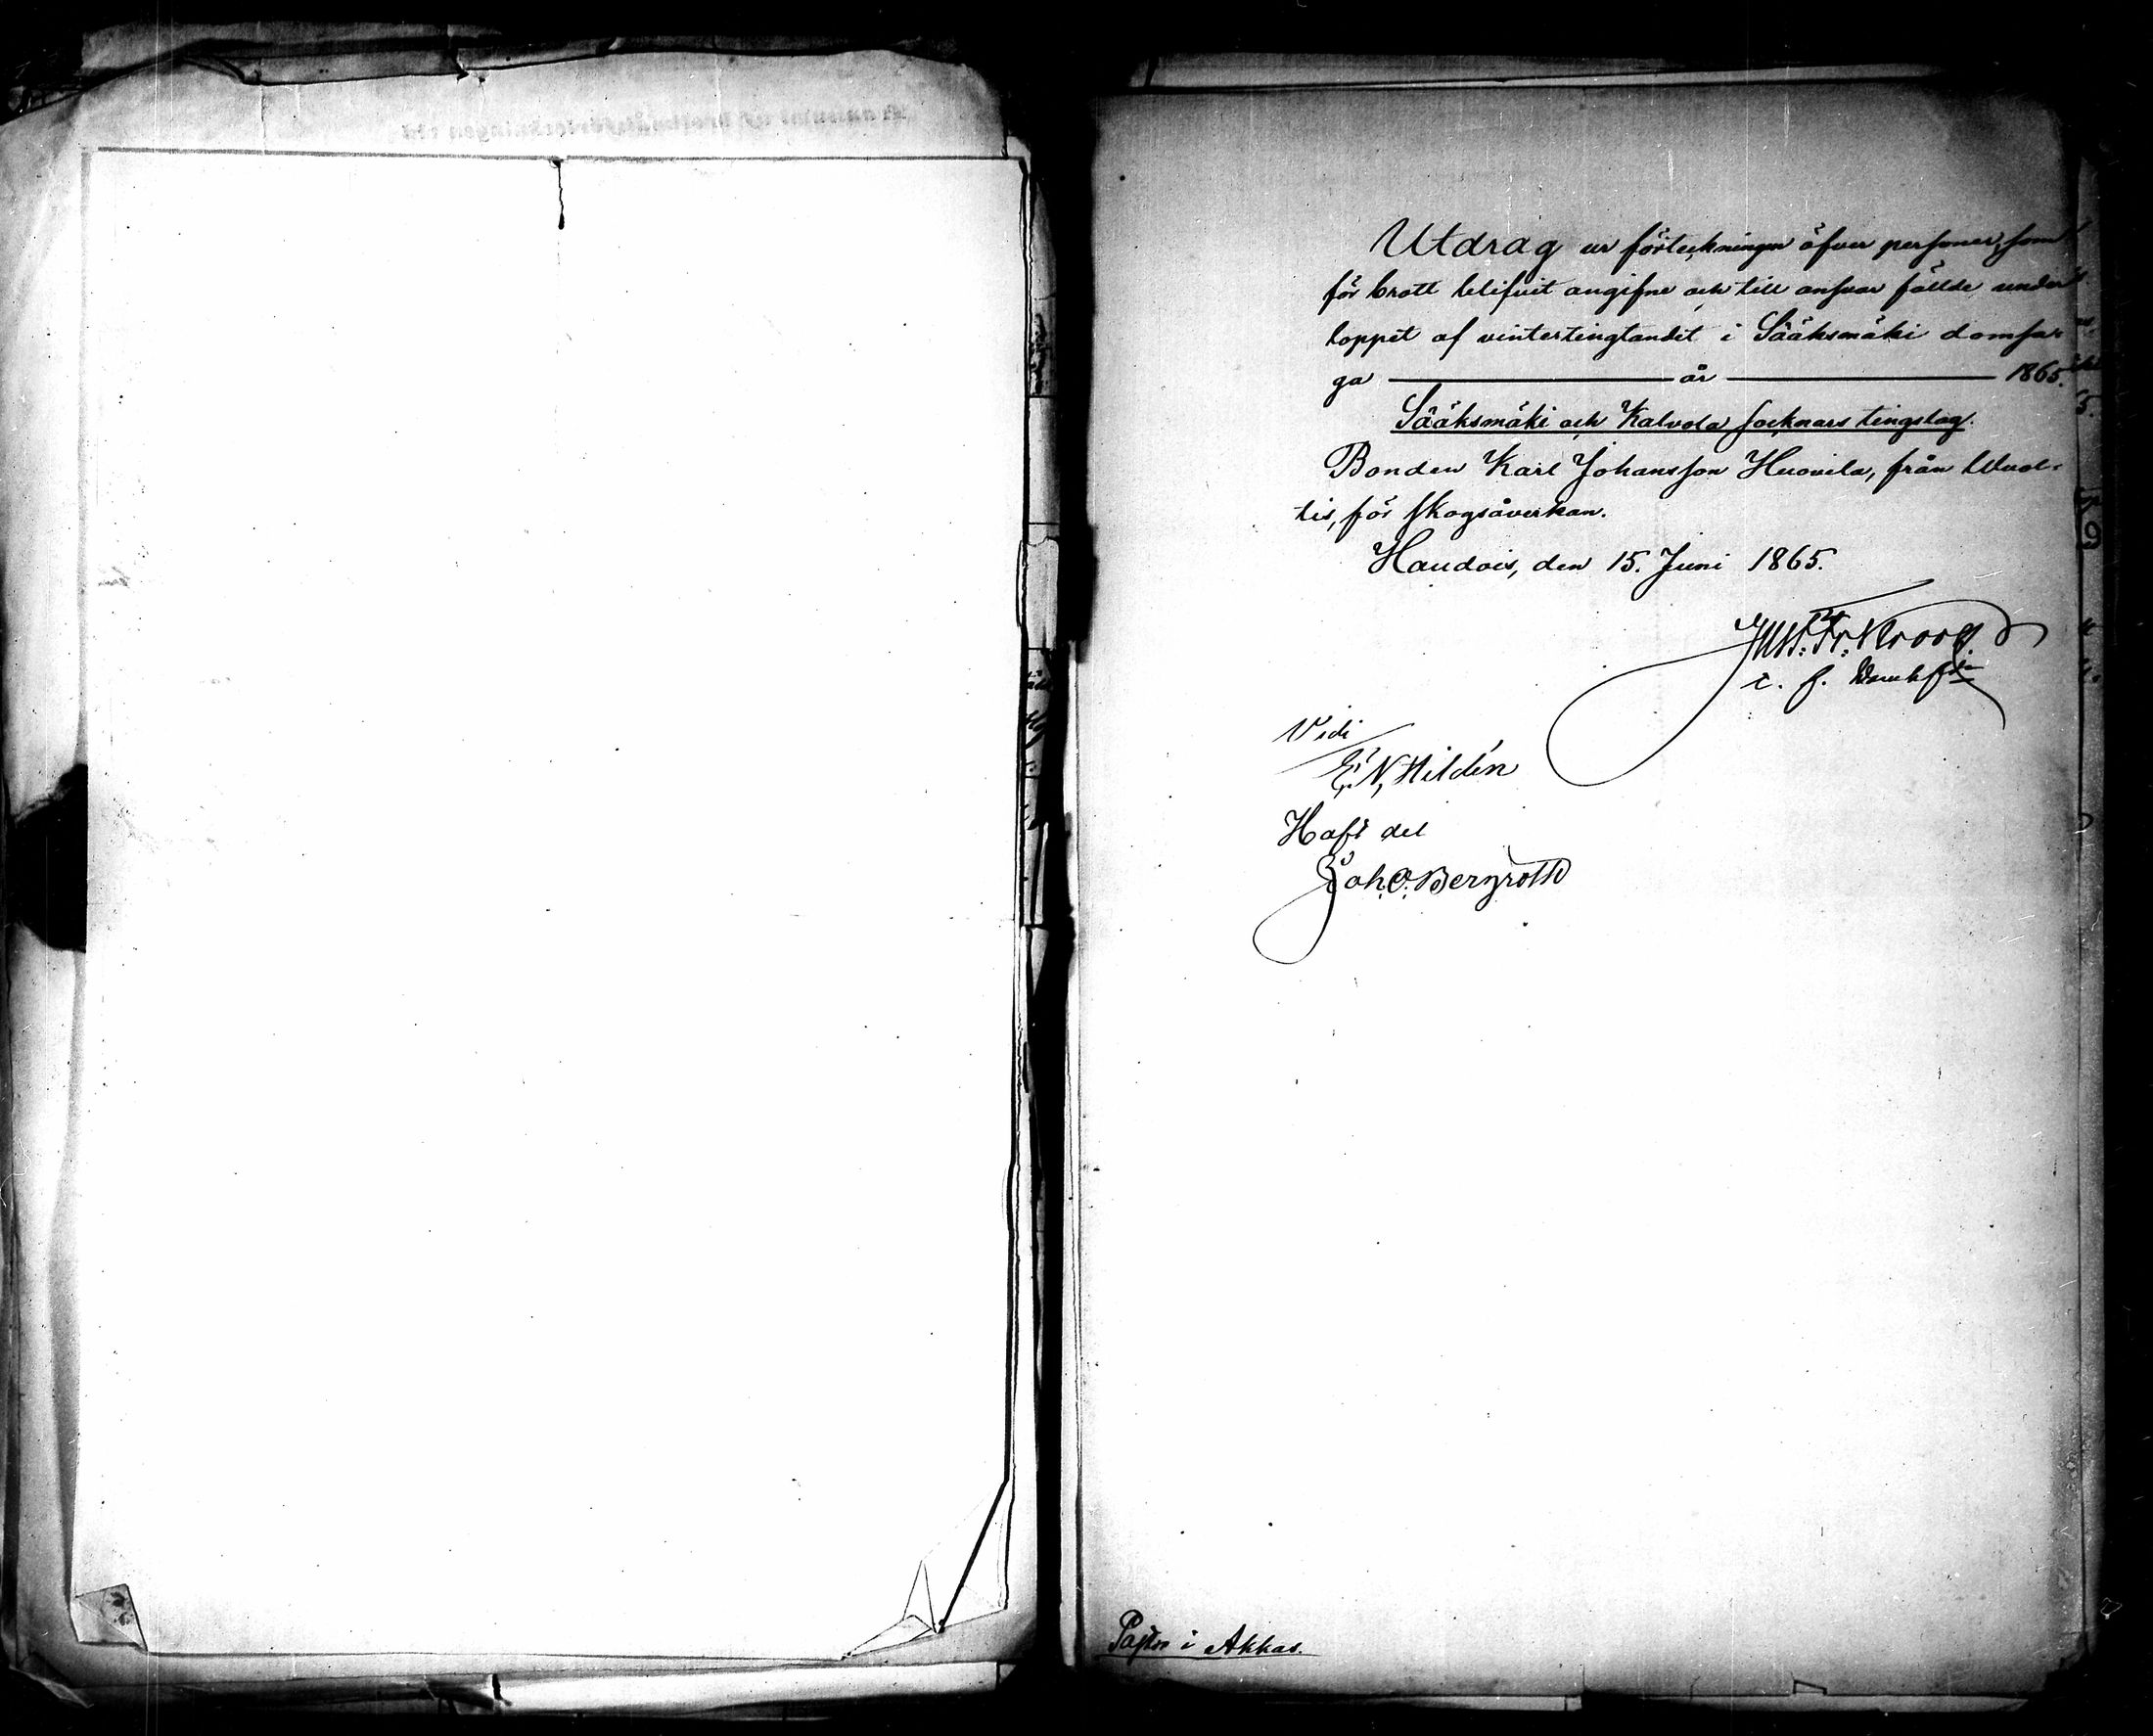 Utdrag ur förteckningen öfver personer, som
för brott blifvit angifne och till ansvar fällde under
loppet af vintertingtandet i Sääksmäki domsar
ga ——— år ——— 1865.
Sääksmäki och Kalvola socknars tingslag.
Bonden Karl Johansson Huovila, från
tis, för skogsåverkan.
Haudois, den 15. Juni 1865.
i. f.
Vidi
E. N. Hildén
Haft del
Joh. O. Bergroth
Pastor i Akkas.